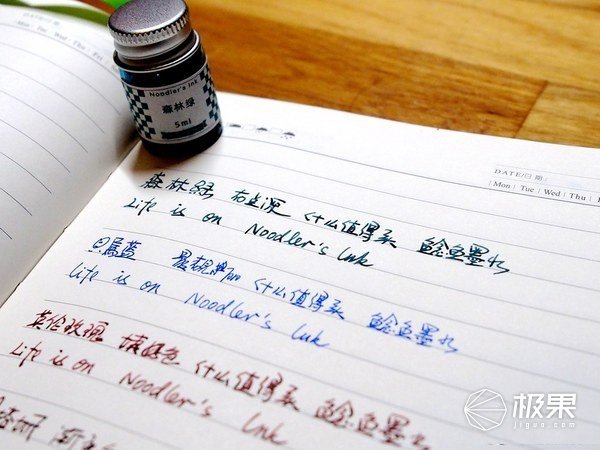 DATE/日期
Mon Tue Wed Thu Fri
Noodler's Ink
森林绿
5ml
DATE/日期:
Mon Tue Wed Thu Fri
森林绿 有点深 什么值得买 鲶鱼墨水
Life is on Noodler's Ink
什么值得买 鲶鱼墨水
Life is on Noodler's Ink
英伦玫瑰 什么值得买 鲶鱼墨水
Life is on Noodler's Ink
极果
jiguo.com